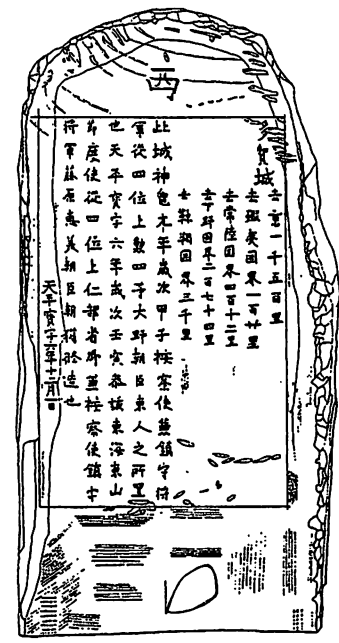 西
多賀城
去京一千五百里
去蝦夷国界一百廿里
去常陸国界四百十二里
去下野国界二百七十四里
去靺鞨国界三千里
此城神亀元年歳次甲子按察使兼鎮守将
軍從四位上勲四等大野朝臣東人之所置
也天平寶字六年歳次壬寅参議東海東山
節度使從四位上仁部省卿兼按察使鎮守
将軍藤原恵美朝臣朝獦修造也
天平寶字六年十二月一日